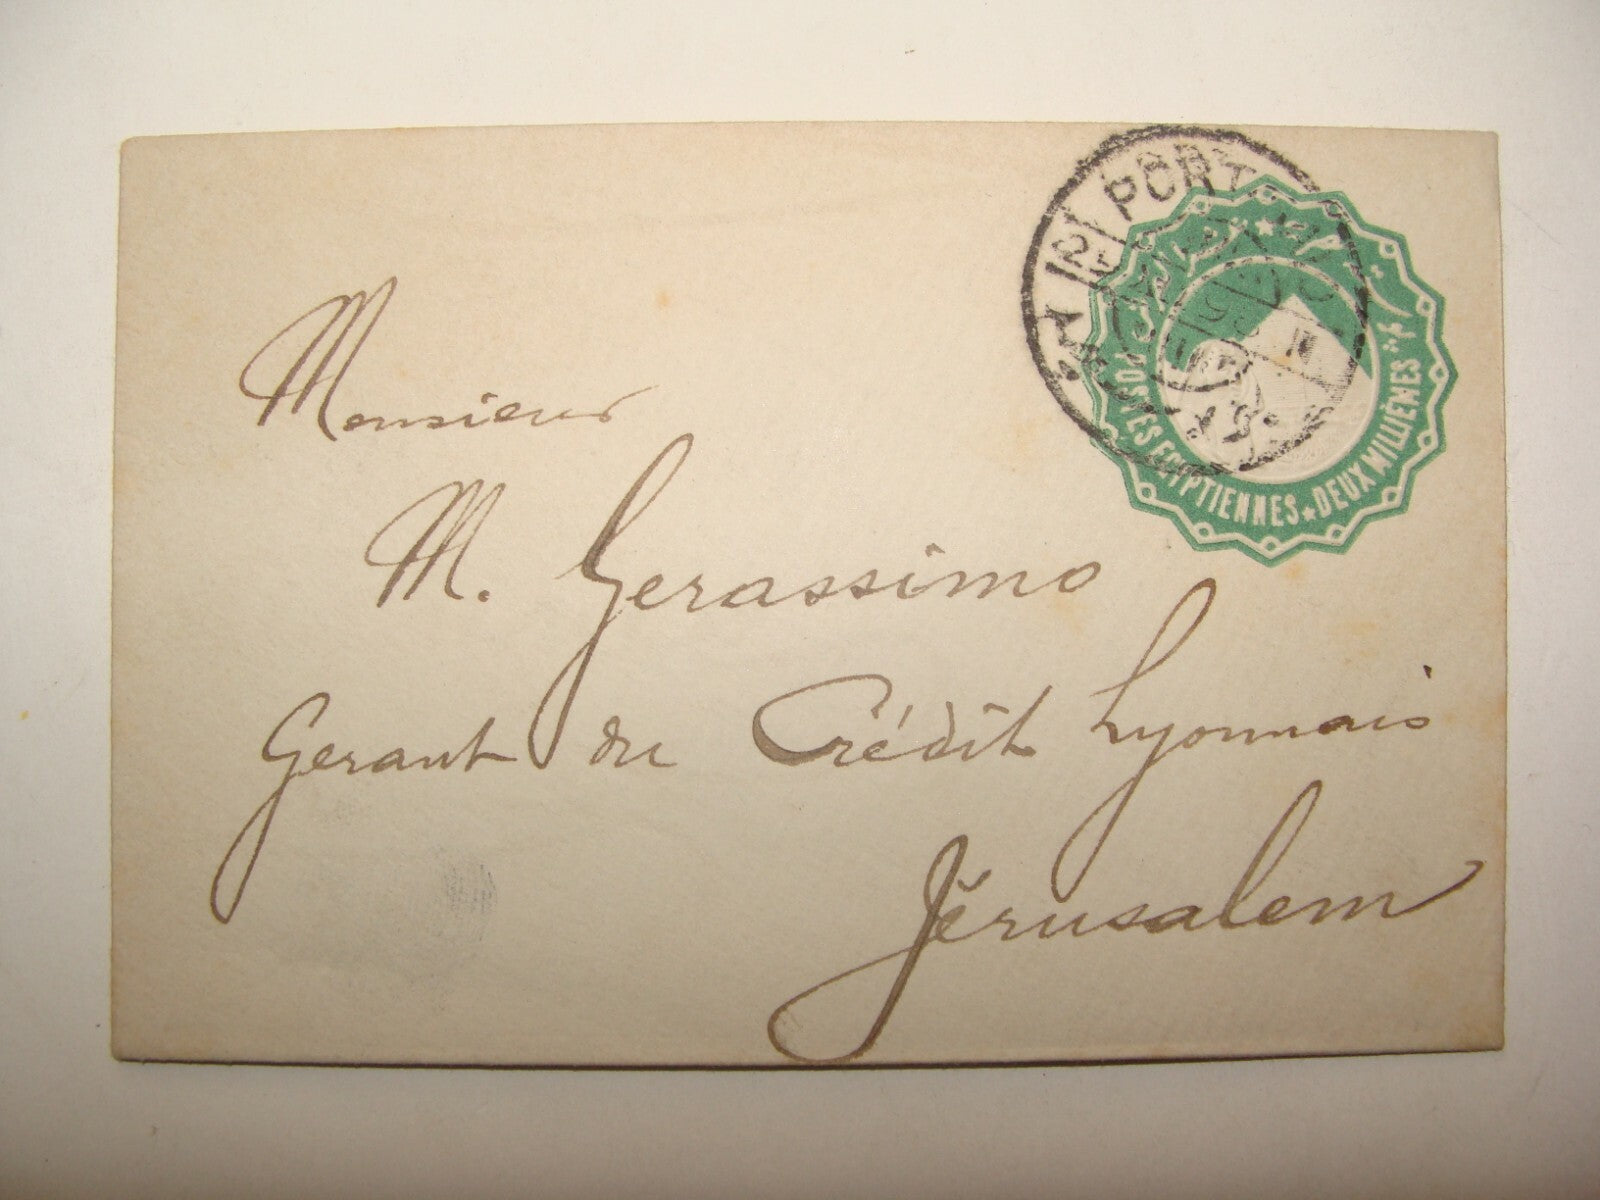 PORT
POSTES EGYPTIENNES ★ DEUX MILLIÈMES
Monsieur
M. Gerassimo
Gerant du Crédit Lyonnais
Jérusalem